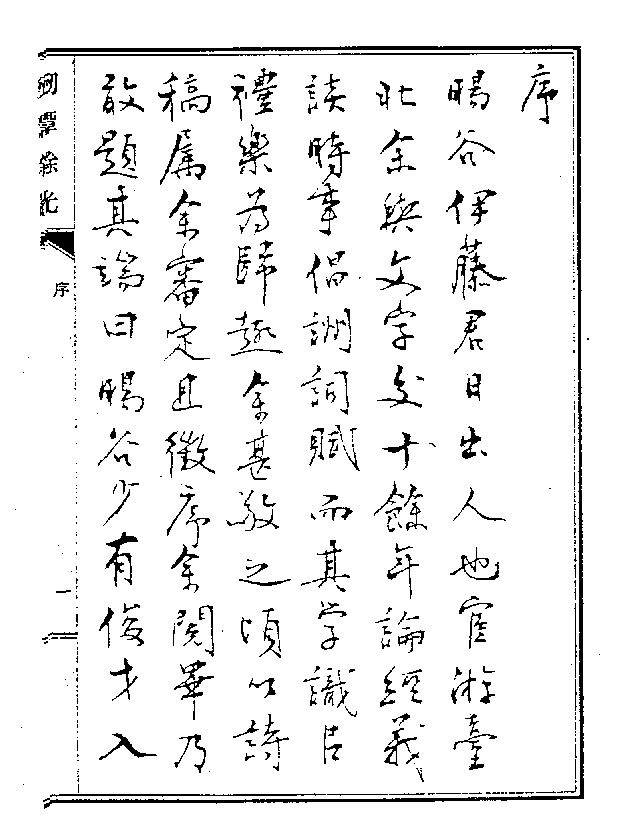 序
暘谷伊藤君日出人也宦游臺
北余與文字交十餘年論經義
談時事倡詶詞賦而其学識㠯
禮樂為歸趣余甚敬之頃以詩
稿属余審定且徴序余閲畢乃
敢題其端曰暘谷少有俊才入
劍潭餘光
序
一